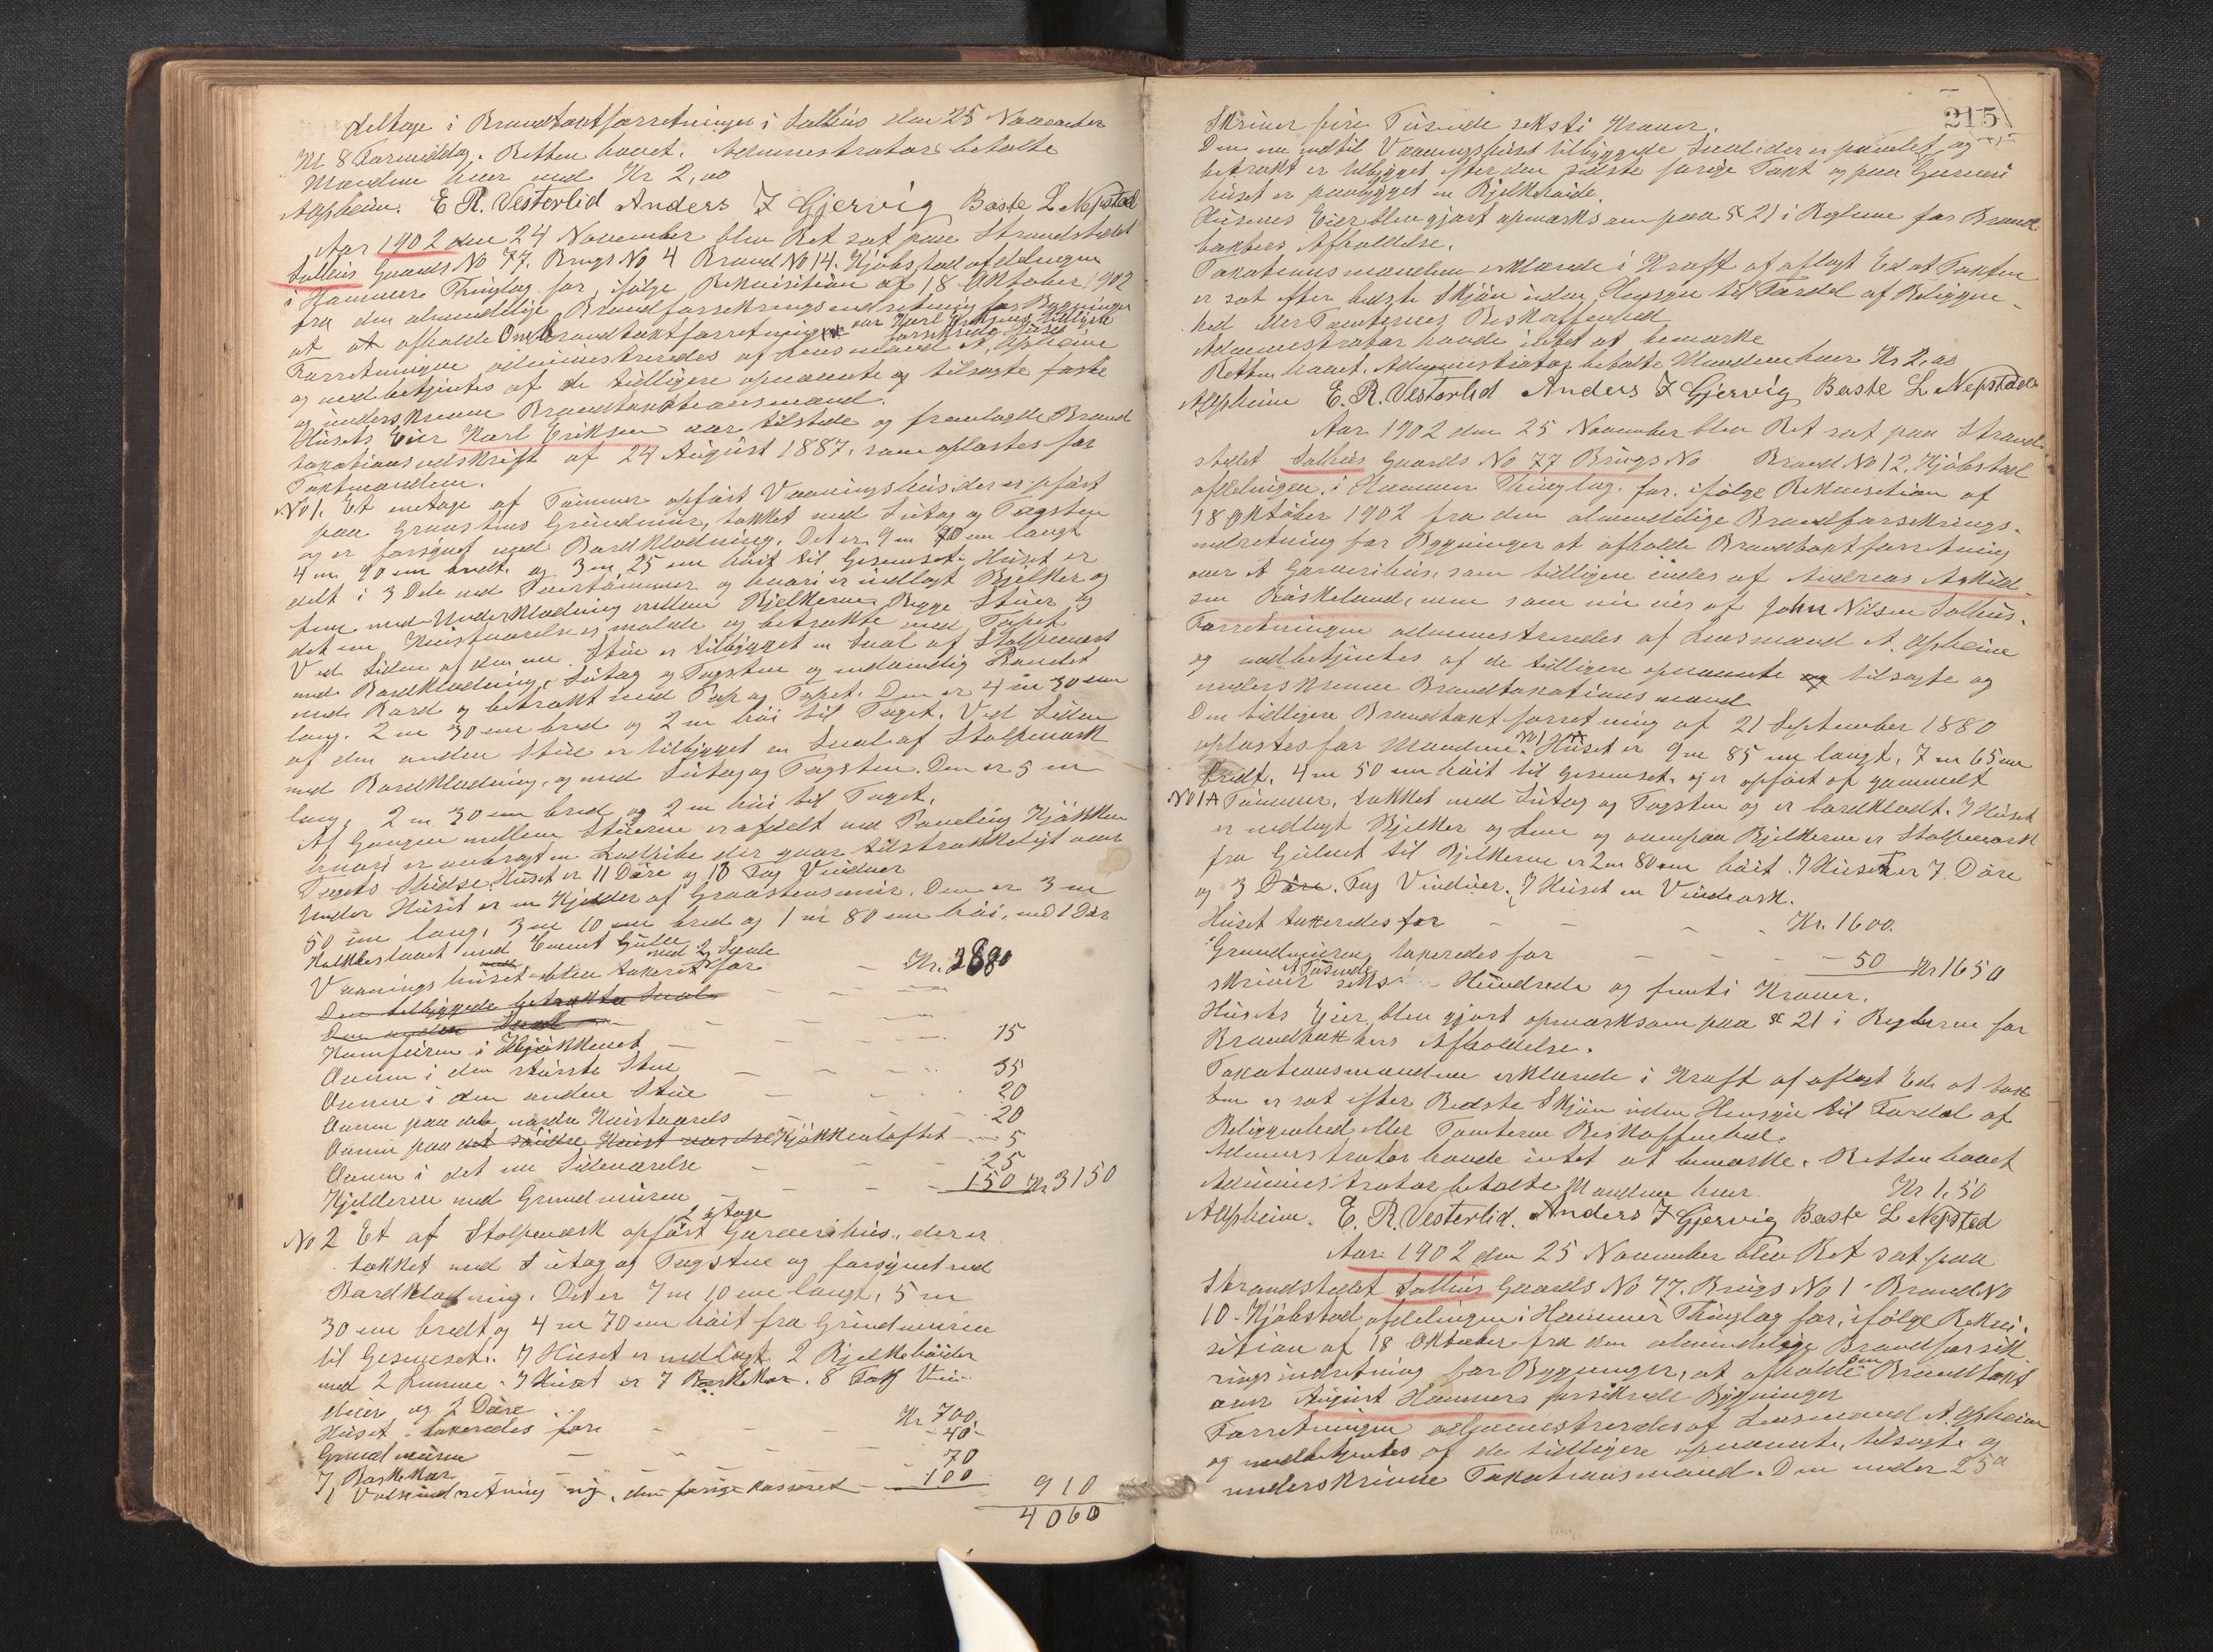 deltage i Brandtaxtforretningen i Salhus den 25 November
Kl 8 Formiddag. Retten hævet. Administrator betalte
Mændene hver med Kr 2,00
A Apheim. E. R. Vesterlid Anders J Gjervig Baste L. Nepstad
Aar 1902 den 24 November blev Ret sat paa Strandstedet
Salhus Gaards No 77. Brugs No 4 Brand No 14. Kjøbstad afdelingen
i Hammers Thinglag for ifølge Rekvisition af 18 Oktober 1902
fra den almindelige Brandforsikringsindretning for Bygninger
at afholde Ombrandtaxtforretning over Karl Eriksens tidligere
forsikrede Huse
Forretningen administreredes af Lensmand A. Apheim
og medbetjentes af de tidligere opnævnte og tilsagte faste
og underskrevne Brandtaxtionsmænd.
Husets Eier Karl Eriksen var tilstede og fremlagde Brand
taxationsudskrift af 24 August 1887, som oplæstes for
Taxtmændene.
No 1. Et en etage af Tømmer opført Vaaningshus der er opført
paa Graastens Grundmur, takket med Sutag og Tagsten
og er forsynet med Bordklædning. Det er 9 m 70 cm langt
4 m 90 cm bredt. og 3 m 25 cm høit til Gesemset. Huset er
delt i 3 Dele med Tvertømmer og hvori er indlagt Bjelker og
Lem med Underklædning mellem Bjelkerne. Begge Stuer og
det ene Kvistværelse er malede og betrukke med Tapet
Ved Siden af den ene Stue er tilbygget en Sval af Stolpeværk
med Bordklædning, Sutag og Tagsten og indvendig Pandet
med Bord og betrukt med Pap og Tapet. Den er 4 m 30 cm
lang. 2 m 30 cm bred og 2 m høi til Taget. Ved Siden
af den anden Stue er tilbygget en Sval af Stolpeværk
med Bordklædning, og med Sutag og Tagsten. Den er 5 m
lang, 2 m 30 cm bred og 2 m høi til Taget.
Af Gangen mellem Stuerne er afdelt med Paneling Kjøkken
hvori er anbragt en Ladpibe der gaar tilstrækkeligt over
Tagets Skidse. Huset er 11 Døre og 13 Fag Vinduer
Under Huset er en Kjelder af Graastensmur. Den er 3 m
50 cm lang, 3 m 10 cm bred og 1 m 80 cm høi, med 1 Dør
Kalkbeslaaet med Cement Gulv
Vaaningshuset med 2 Svale blev takseret for Kr. 2880
Den tilbyggede betrukte Sval
Den anden Sval
Komfuren i Kjøkkenet 15
Ovnen i den største Stue 35
Ovnen i den anden Stue 20
Ovnen paa det nordre Kvistværels 20
Ovnen paa det søndre Kvist værelse Kjøkkenloftet 5
Ovnen i det ene Sideværelse 25
Kjelderen med Grundmuren 150 Kr 3150
No 2 Et af Stolpeværk opført 2 etage Garverihus, der er
takket med Sutag og Tagsten og forsynet med
Bordklædning. Det er 7 m 10 cm langt, 5 m
30 cm bredt og 4 m 70 cm høit fra Grundmuren
til Gesemset. I Huset er indlagt 2 Bjelkehøider
med 2 Lemme. I Huset er 7 Barkekar. 8 Fag Vin
duer og 2 Døre
Huset takseredes for Kr. 700,
Grundmuren 40
7 Barkekar 70
1 Valseindretning ny, den forrige kasseret 100 910
4060
215
Skriver fire Tusinde seksti Kroner.
Den ene indtil Vaaningshuset tilbyggede Sval der er panelet og
betrukt er tilbygget efter den sidste forrige Taxt og paa Garveri
huset er paabygget en Bjelkehøide.
Husenes Eier blev gjort opmærksom paa § 21 i Reglerne for Brand
taxters Afholdelse.
Taxationsmændene erklærede i Kraft af aflagt Ed at Taxten
er sat efter bedste Skjøn uden Hensyn til Fordel af Beliggen-
hed eller Tomternes Beskaffenhed
Administrator havde intet at bemærke
Retten hævet. Administrator betalte Mændene hver Kr 2,00
A Apheim E. R. Vesterlid Anders J Gjervig Baste L. Nepstad
Aar 1902 den 25 November blev Ret sat paa Strand-
stedet Salhus Gaards No 77 Brugs No Brand No 12. Kjøbstad
afdelingen i Hammer Thinglag, for ifølge Rekvisition af
18 Oktober 1902 fra den almindelige Brandforsikrings-
indretning for Bygninger at afholde Brandtaxtforretning
over et Garverihus, som tidligere eiedes af Andreas Askild-
sen Röskeland, men som nu eies af John Nilsen Salhus.
Forretningen administreredes af Lensmand A. Apheim
og medbetjentes af de tidligere opnævnte og tilsagte og
underskrevne Brandtaxationsmænd.
Den tidligere Brandtaxtforretning af 21 September 1880
oplæstes for Mændene. Huset er 9 m 85 cm langt, 7 m 65 cm
bredt, 4 m 50 cm høit til Gesemset. og er opført af gammelt
No 1 A Tømmer, takket med Sutag og Tagsten og er bordklædt. I Huset
er indlagt Bjelker og Lem og ovenpaa Bjelkerne er Stolpeværk
fra Gulvet til Bjelkerne er 2 m 80 cm høit. I Huset er 7 Døre
og 3 Døre. Fag Vinduer. I Huset en Vindeark.
Huset takseredes for Kr. 1600.
Grundmuren takseredes for 50 Kr 1650
skriver et Tusinde seks Hundrede og femti Kroner.
Husets Eier blev gjort opmærksom paa § 21 i Reglerne for
Brandtaxters Afholdelse.
Taxationsmændene erklærede i Kraft af aflagt Ed at tax
ten er sat efter Bedste Skjøn uden Hensyn til Fordel af
Beliggenhed eller Tomterne Beskaffenhed.
Administrator havde intet at bemærke. Retten hævet
Administrator betalte Mændene hver Kr 1,50
A Apheim. E. R. Vesterlid. Anders J Gjervig Baste L Nepstad
Aar 1902 den 25 November blev Ret sat paa
Strandstedet Salhus Gaards No 77. Brugs No 1 - Brand No
10. Kjøbstad afdelingen i Hammer Thinglag for, ifølge Rekvi-
sition af 18 Oktober fra den almindelige Brandforsik
ringsindretning for Bygninger, at afholde om Brandtaxt
over August Hammers forsikrede Bygninger
Forretningen administreredes af Lensmand A. Apheim
og medbetjentes af de tidligere opnævnte, tilsagte og
underskrevne Taxationsmænd. Den under 25de